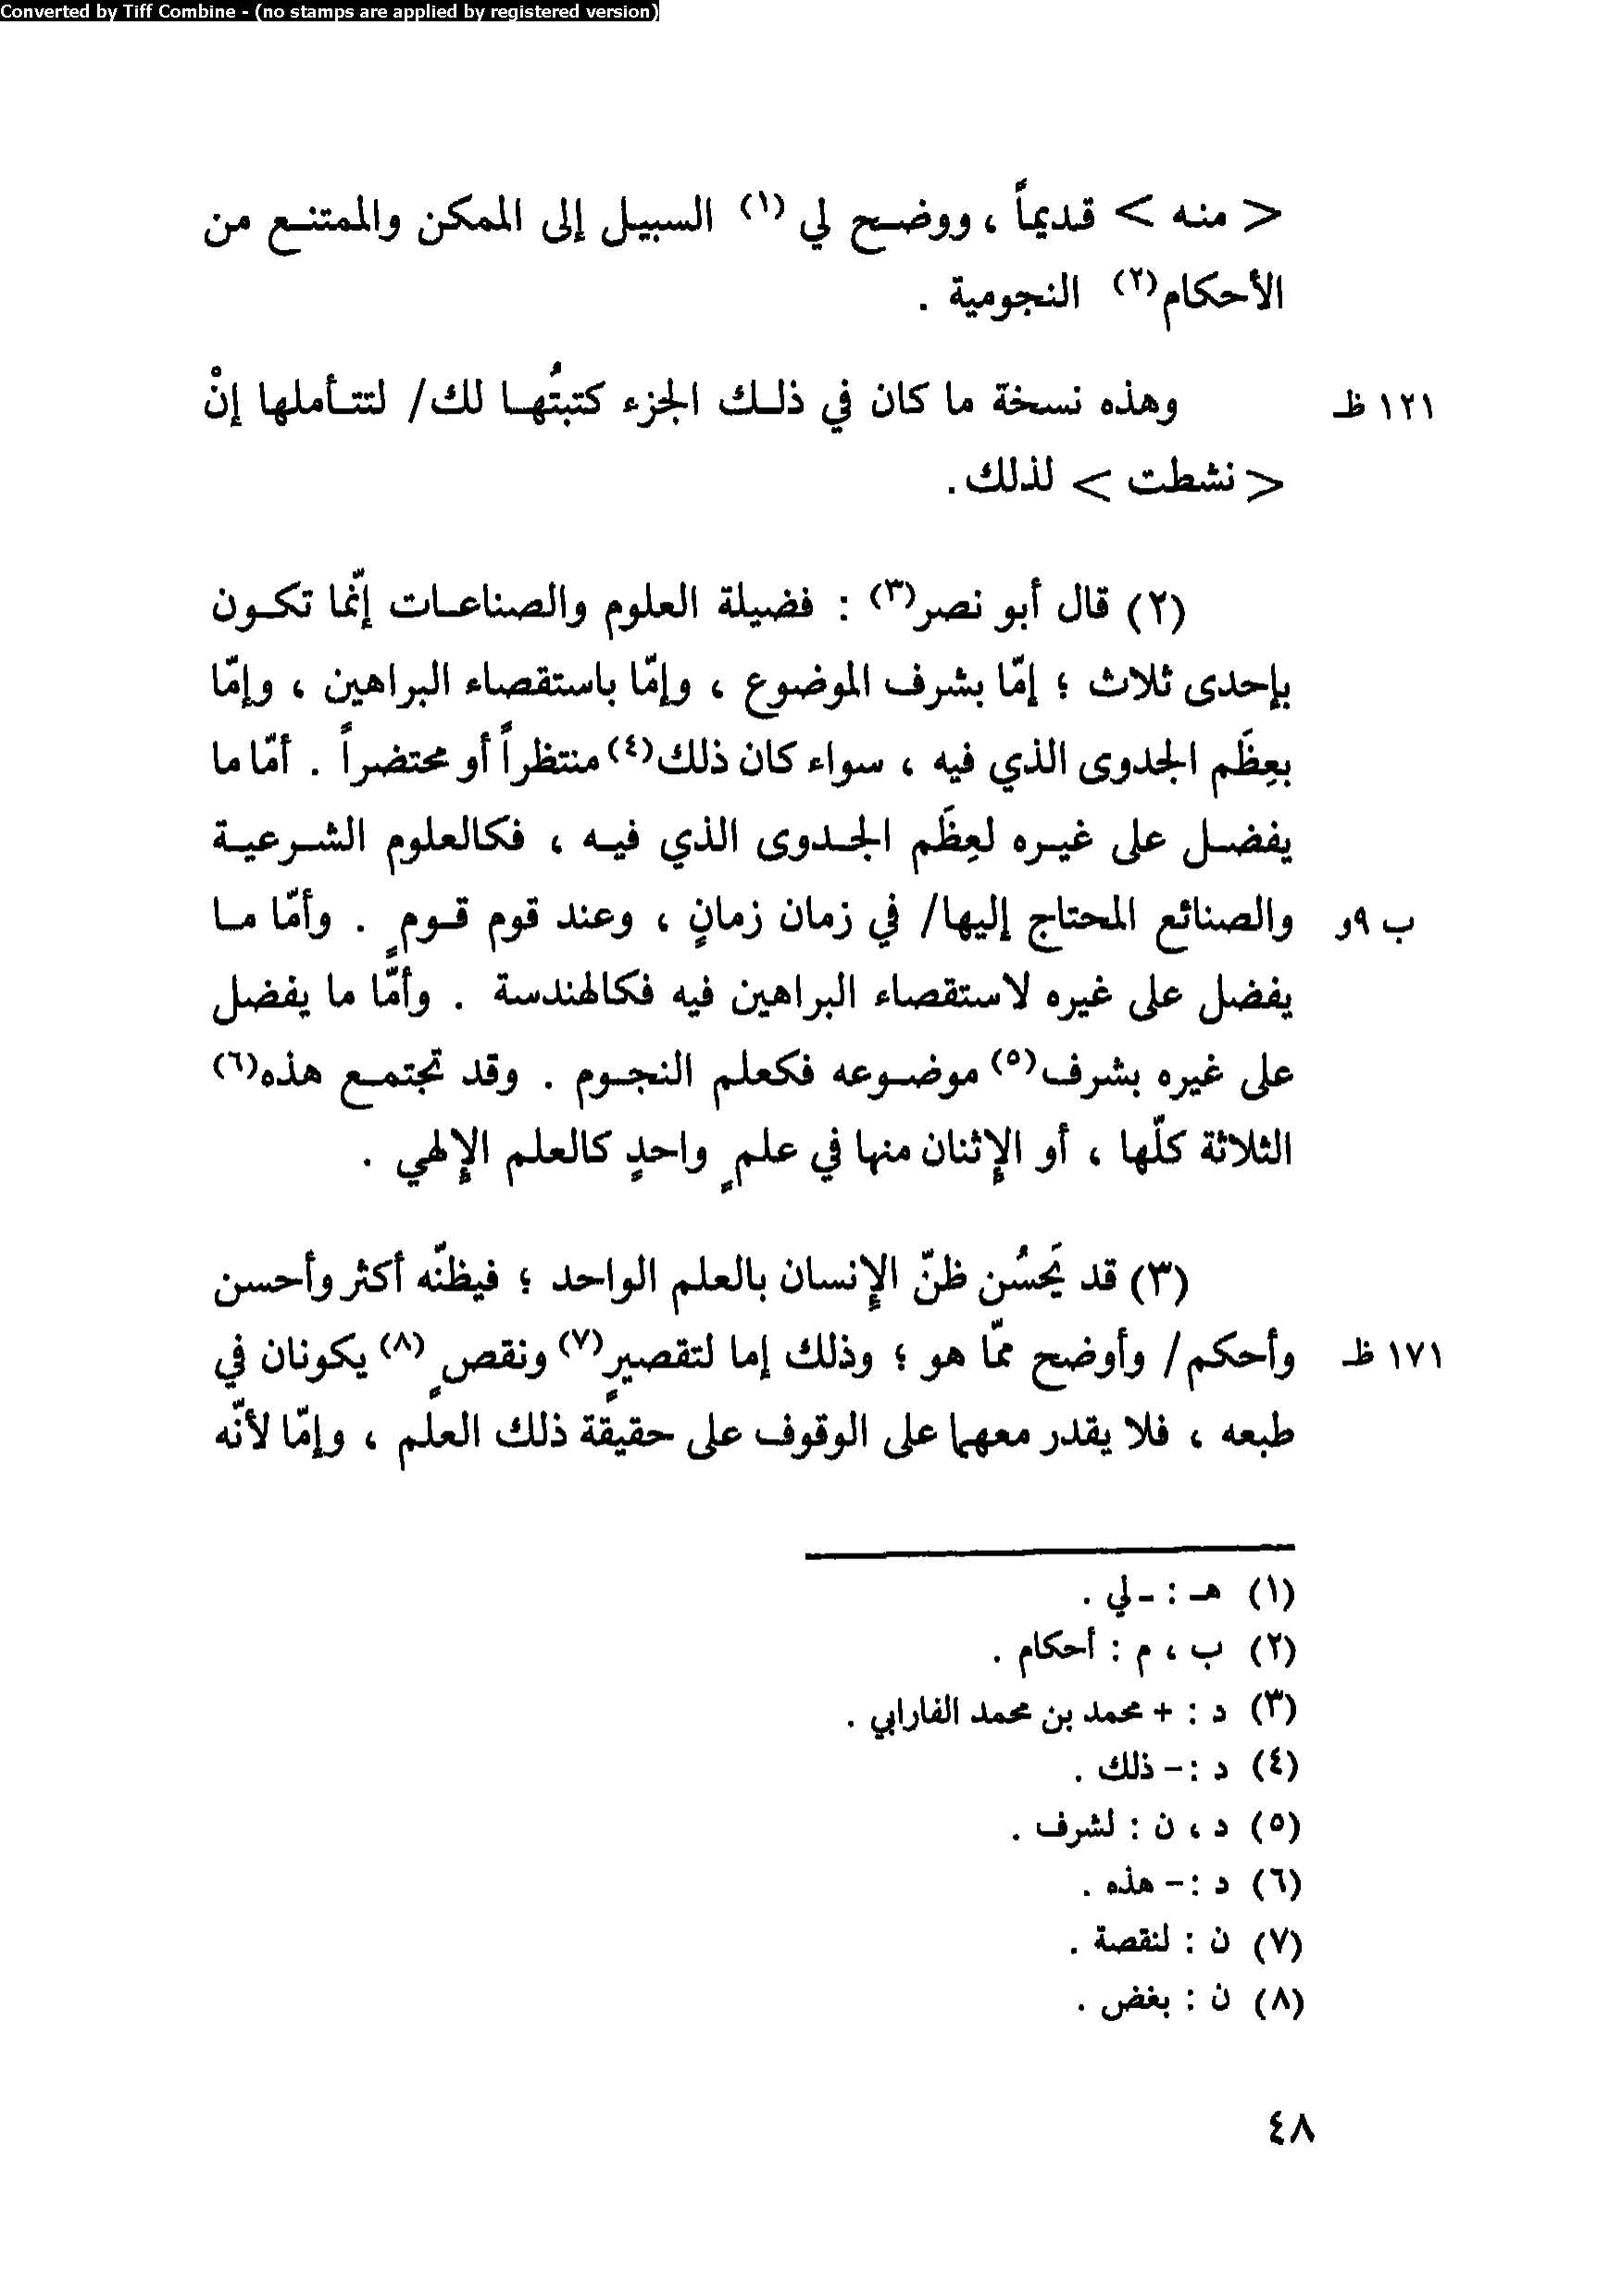 Converted by Tiff Combine - (no stamps are applied by registered version)
< منه > قديماً ، ووضح لي (١) السبيل إلى الممكن والممتنع من
الأحكام(٢) النجومية .
١٢١ ظ وهذه نسخة ما كان في ذلك الجزء كتبتُها لك/ لتتأملها إنْ
< نشطت > لذلك.
(٢) قال أبو نصر(٣) : فضيلة العلوم والصناعات إنّما تكون
بإحدى ثلاث ؛ إمّا بشرف الموضوع ، وإمّا باستقصاء البراهين ، وإمّا
بعِظَم الجدوى الذي فيه ، سواء كان ذلك(٤) منتظراً أو محتضراً . أمّا ما
يفضل على غيره لعِظَم الجدوى الذي فيه ، فكالعلوم الشرعية
ب ٩و والصنائع المحتاج إليها/ في زمان زمانٍ ، وعند قوم قومٍ . وأمّا ما
يفضل على غيره لاستقصاء البراهين فيه فكالهندسة . وأمّا ما يفضل
على غيره بشرف(٥) موضوعه فكعلم النجوم . وقد تجتمع هذه(٦)
الثلاثة كلّها ، أو الإثنان منها في علمٍ واحدٍ كالعلم الإلهي .
(٣) قد يَحسُن ظنّ الإنسان بالعلم الواحد ؛ فيظنّه أكثر وأحسن
١٧١ ظ وأحكم/ وأوضح ممّا هو ؛ وذلك إما لتقصيرٍ(٧) ونقصٍ(٨) يكونان في
طبعه ، فلا يقدر معهما على الوقوف على حقيقة ذلك العلم ، وإمّا لأنّه
(١) هـ : - لي .
(٢) ب ، م : أحكام .
(٣) د : + محمد بن محمد الفارابي .
(٤) د :- ذلك .
(٥) د ، ن : لشرف .
(٦) د :- هذه .
(٧) ن : لنقصة .
(٨) ن : بغض .
٤٨